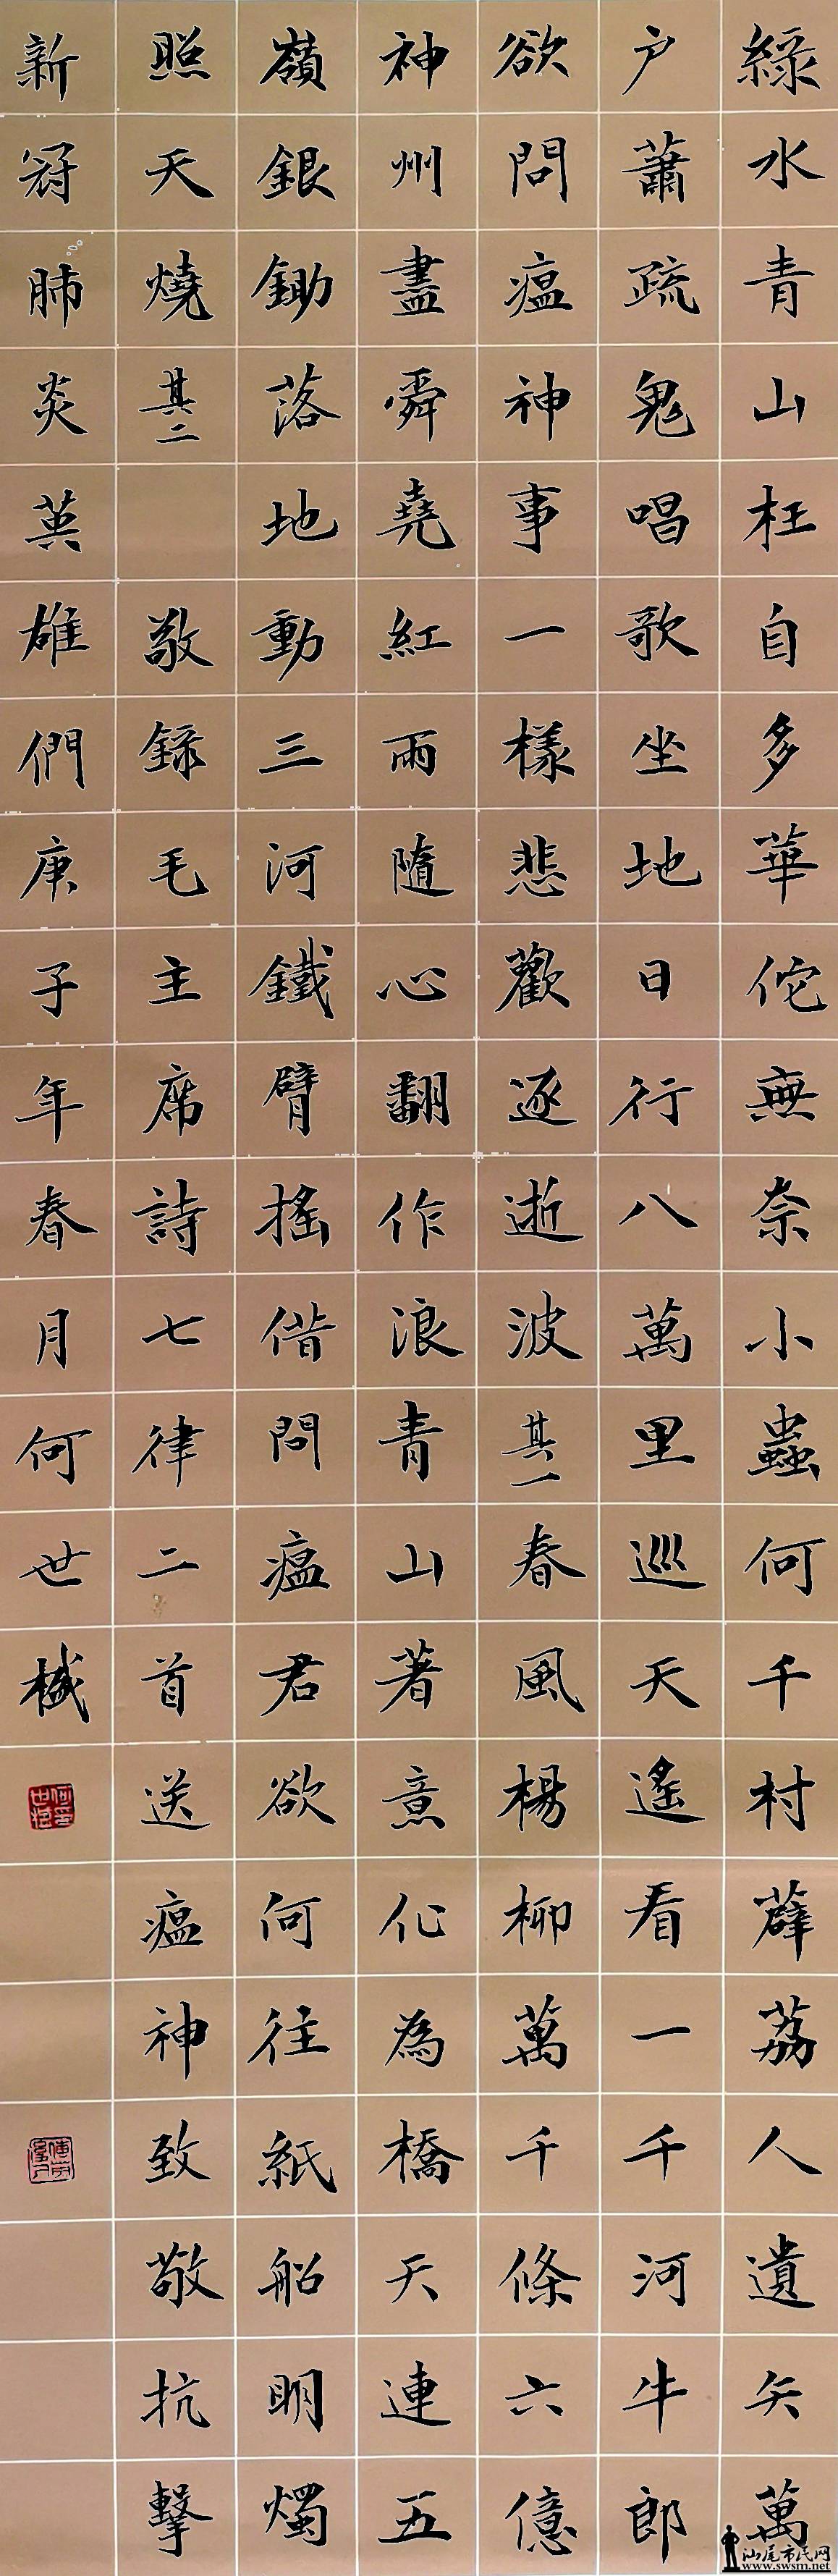 綠水青山枉自多華佗無奈小蟲何千村薜荔人遺矢萬
户蕭疏鬼唱歌坐地日行八萬里巡天遙看一千河牛郎
欲問瘟神事一樣悲歡逐逝波其一春風楊柳萬千條六億
神州盡舜堯紅雨隨心翻作浪青山著意化為橋天連五
嶺銀鋤落地動三河鐵臂搖借問瘟君欲何往紙船明燭
照天燒其二 敬錄毛主席詩七律二首送瘟神致敬抗擊
新冠肺炎英雄們庚子年春月何世樾
汕尾市民网
www.swsm.net